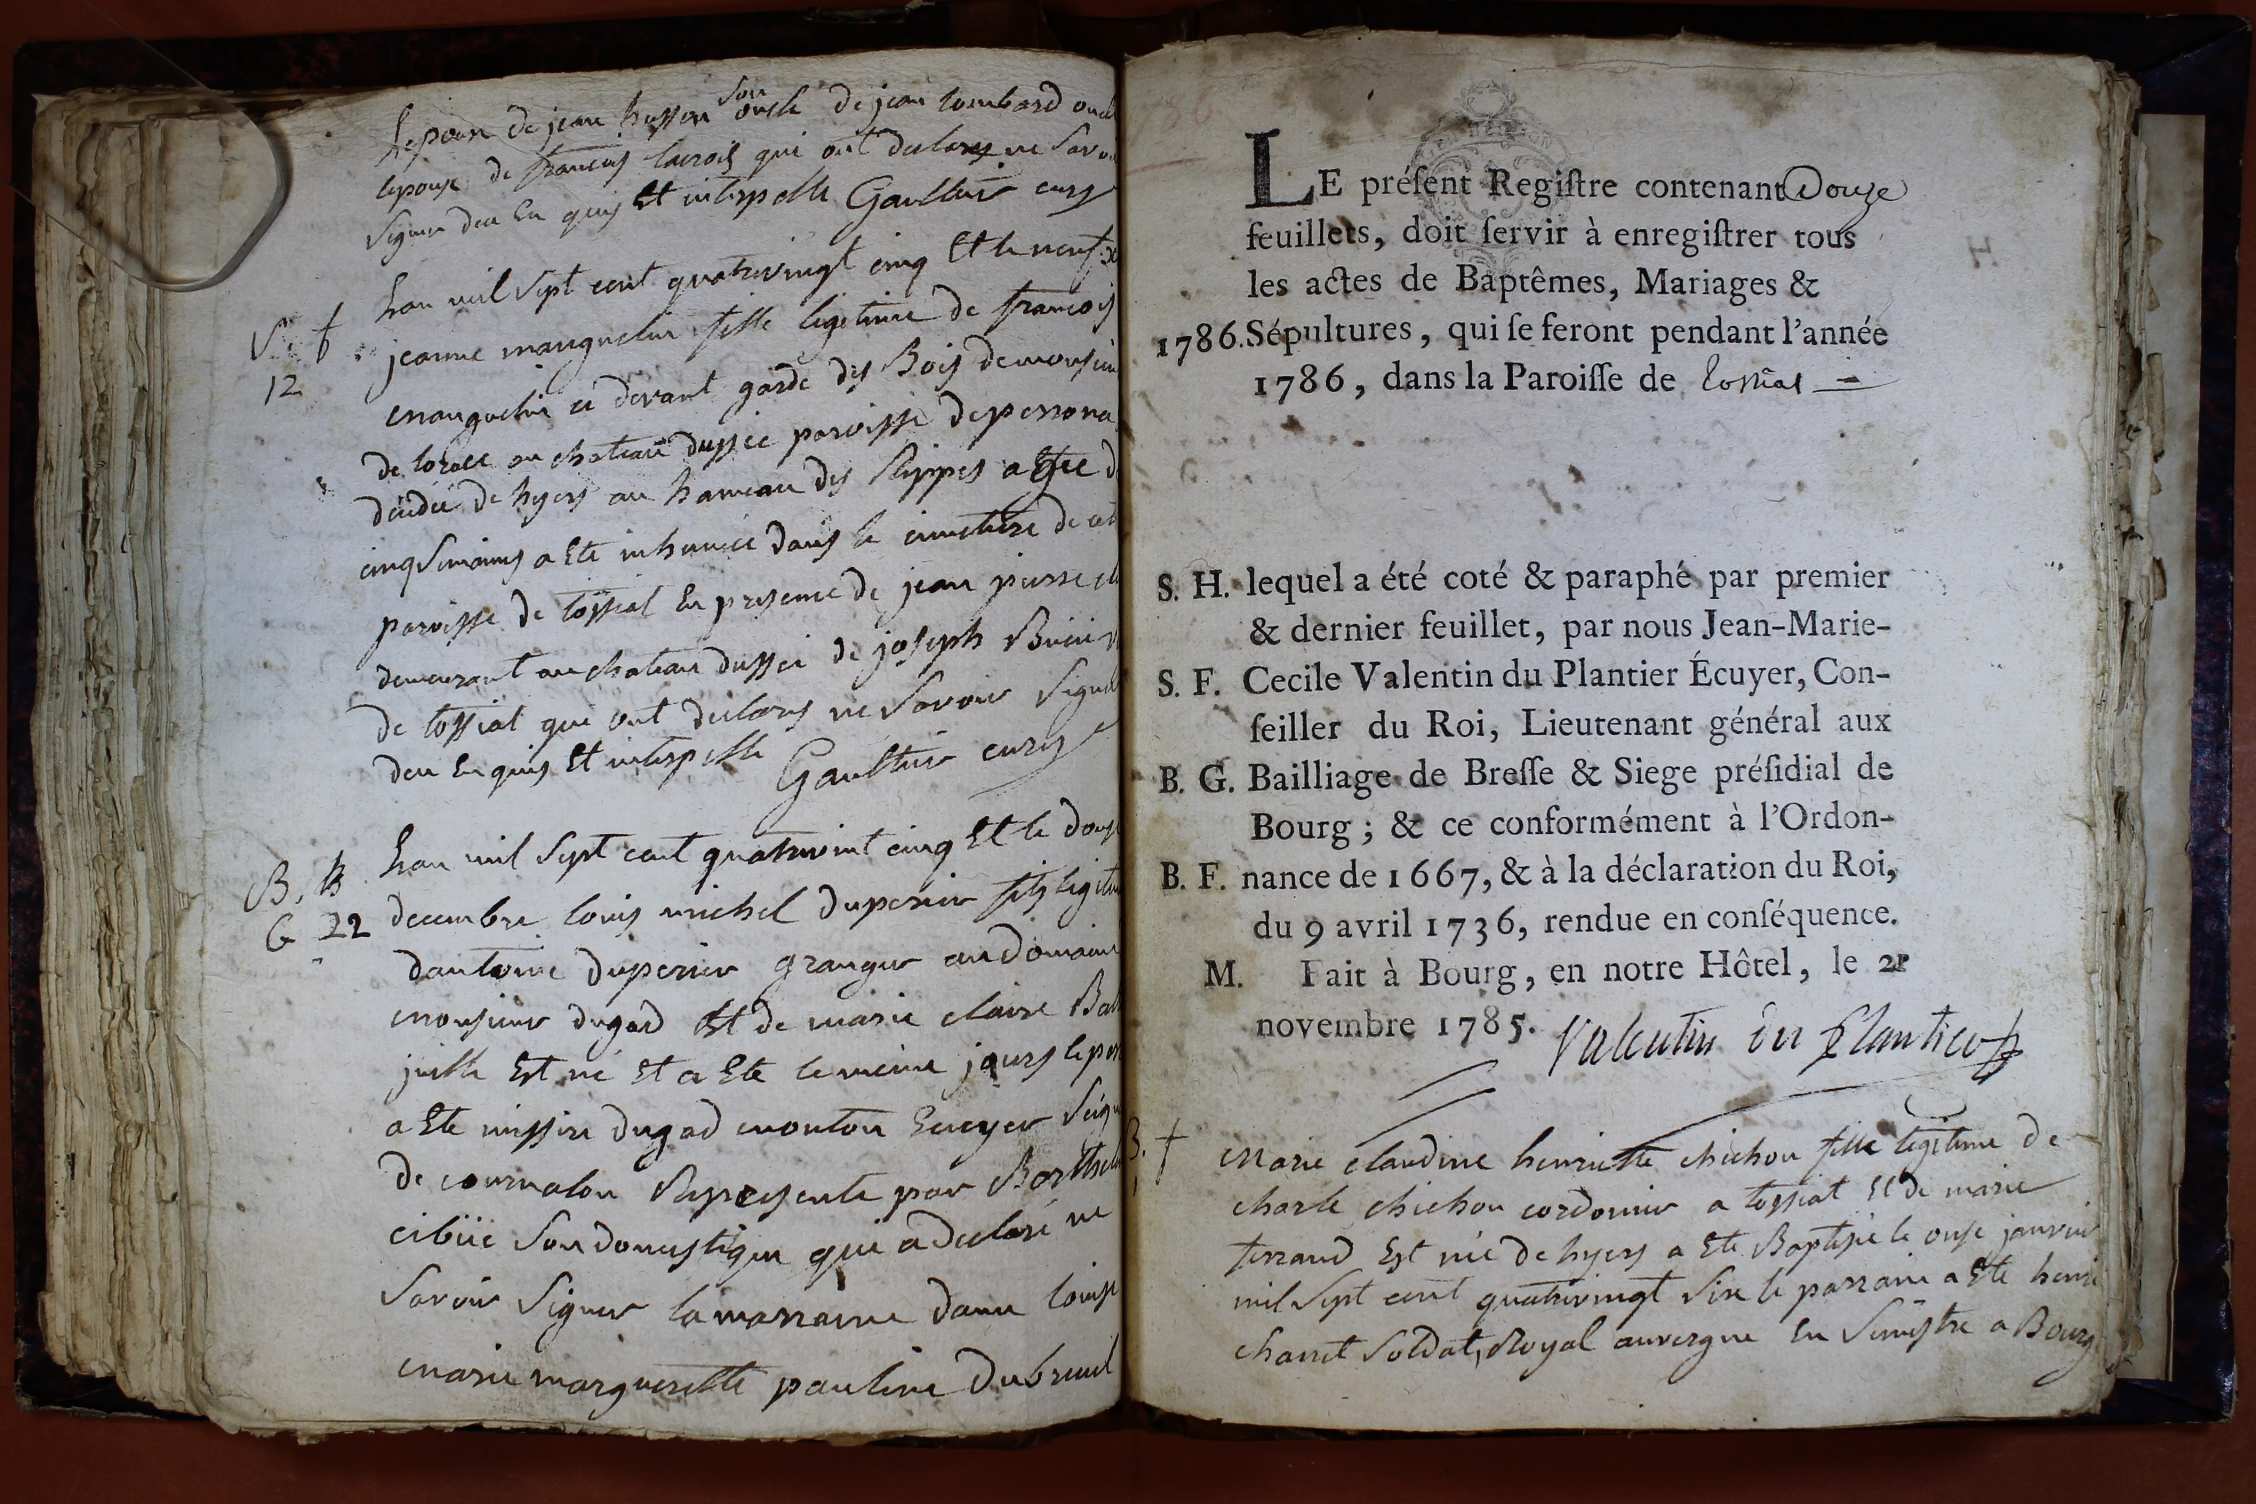 de jean husson son oncle de jean lombard oncle
lepouse de francois lacroix qui ont declarez ne savoir
signer deu En quis Et interpelle Gaultier curez
Lan mil sept cent quatrevingt cinq Et le neuf
S. f jeanne manguelin fille legitime de francois
12 manguelin ci devant garde des Bois de monsieur
de loraee au chateau dussee paroisse de perona
decidee de hyers au hameau des Rippes agee de
cinq semaines a Ete inhumee dans le cimetiere de cette
paroisse de tossiat En presence de jean pierre
demeurant au chateau dussei de joseph Buiri
de tossiat qui ont declares ne savoir signer
deu En quis Et interpelle Gaultier curez
B. B Lan mil sept cent quatrevint cinq Et le douze
G 22 decembre louis michel duperier fils legitime
dantoine duperier granger au domaine
monsieur dugad Et de marie claire
juille Est né Et a Ete le meme jours
a Ete missire dugad mouton Ecuyer
de cournalon Represente par
cibiie son domestique qui a declaré ne
savoir signer la marraine dame louise
marie marguerite pauline dubreuil
LE préſent Regiſtre contenant Douze
feuillets, doit ſervir à enregiſtrer tous
les actes de Baptêmes, Mariages &
1786. Sépultures, qui ſe feront pendant l'année
1786, dans la Paroiſſe de tossiat
S. H. lequel a été coté & paraphé par premier
& dernier feuillet, par nous Jean-Marie-
S. F. Cecile Valentin du Plantier Écuyer, Con-
ſeiller du Roi, Lieutenant général aux
B. G. Bailliage de Breſſe & Siege préſidial de
Bourg ; & ce conformément à l'Ordon-
B. F. nance de 1667, & à la déclaration du Roi,
du 9 avril 1736, rendue en conſéquence.
M. Fait à Bourg, en notre Hôtel, le 21
novembre 1785. Valentin du Plantier
B. f marie claudine henriette chichon fille legitime de
charle chichon cordonier a tossiat Et de marie
ferrand Est née de hyers a Ete Baptisée le onse janvier
mil sept cent quatrevingt six le parrain a Ete henri
charret soldat, Royal auvergne En semestre a Bourg